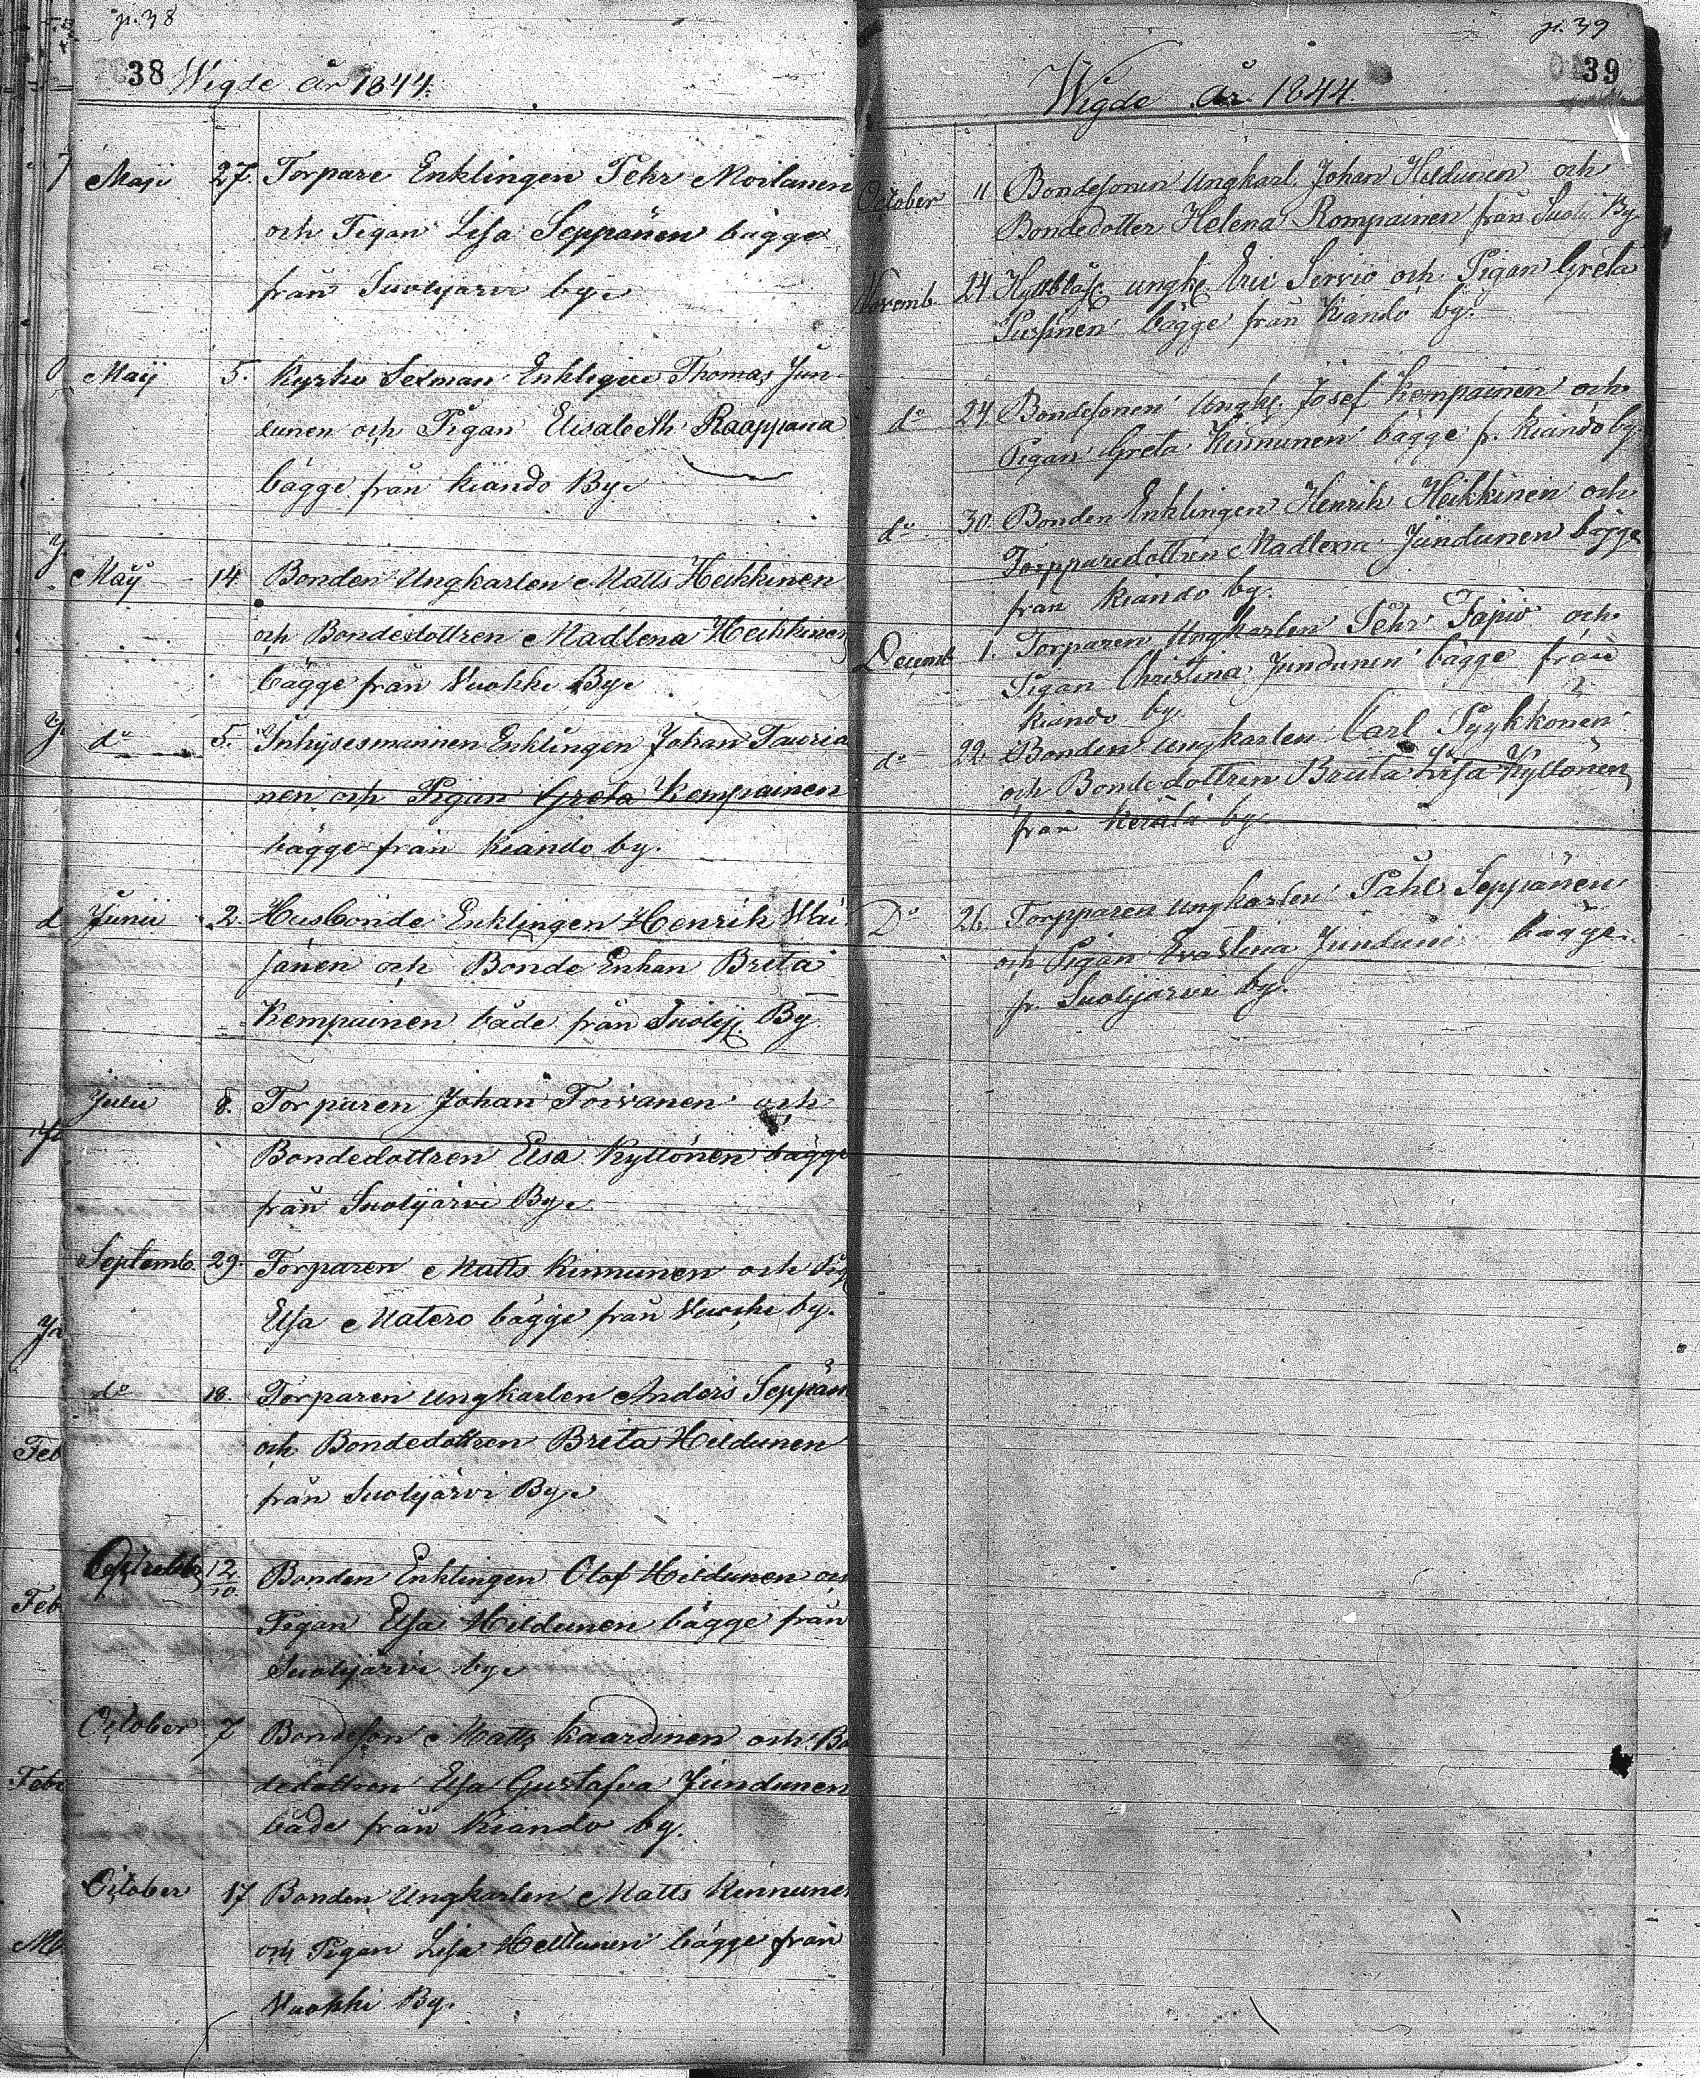 p. 38
38 Wigde år 1844.
Maji 27. Torpare Enklingen Pehr Moilanen
och Pigan Lisa Seppänen bägge
från Suolijärvi by.
Maij 5. Kyrko Sexman Enklingen Thomas Jun-
tunen och Pigan Elisabeth Raappana
bägge från Kiando By.
Maij 14 Bonden Ungkarlen Matts Heikkinen
och Bondedottren Madlena Heikkinen
bägge från Vuokki By.
do 5. Inhysesmannen Enklingen Johan Tauria
nen och Pigan Greta Kempainen
bägge från Kiando by.
Junii 2. Husbonde Enklingen Henrik Wäi-
sänen och Bonde Enkan Brita
Kempainen både från Suolij. By
Julii 8. Torparen Johan Toivanen och
Bondedottren Elsa Kyttönen bägge
från Suolijärvi By.
Septemb. 29. Torparen Matts Kinnunen och Pig
Elsa Matero bägge från Vuoki by.
do 18. Torparen ungkarlen Anders Seppän
och Bondedottren Brita Hildunen
från Suolijärvi By.
12/10. Bonden Enklingen Olof Hildunen och
Pigan Elsa Hildunen bägge från
Suolijärvi by.
October 7 Bondeson Matts Kaardinen och Bo
dedottren Elsa Gustafva Jundunen
både från Kiando by.
October 17 Bonden Ungkarlen Matts Kinnunen
och Pigan Lisa Heldunen bägge från
Vuokki By.
p. 39
39
Wigde år 1844.
October 11 Bondesonen Ungkarl. Johan Hildunen och
Bondedotter Helena Rompainen från Suoli By
Novemb. 24. ungk. Eric Servio och Pigan Greta
bägge från Kiando by.
do 24. Bondesonen Ungk. Josef Kempainen och
Pigan Greta Kinnunen bägge fr. Kiando by
do 30. Bonden Enklingen Henrik Heikkinen och
Torpparedottren Madlena Jundunen bägge
från Kiando by.
Decemb 1. Torparen Ungkarlen Pehr Tapio och
Pigan Christina Jundunen bägge från
Kiando by.
do 22. Bonden ungkarlen Carl Pyykkönen
och Bondedottren Brita Lisa Kyttönen
från Kerälä by.
Do 26. Torpparen ungkarlen Påhl Seppänen
och Pigan Eva Stina Jundun bägge
fr. Suolijärvi by.